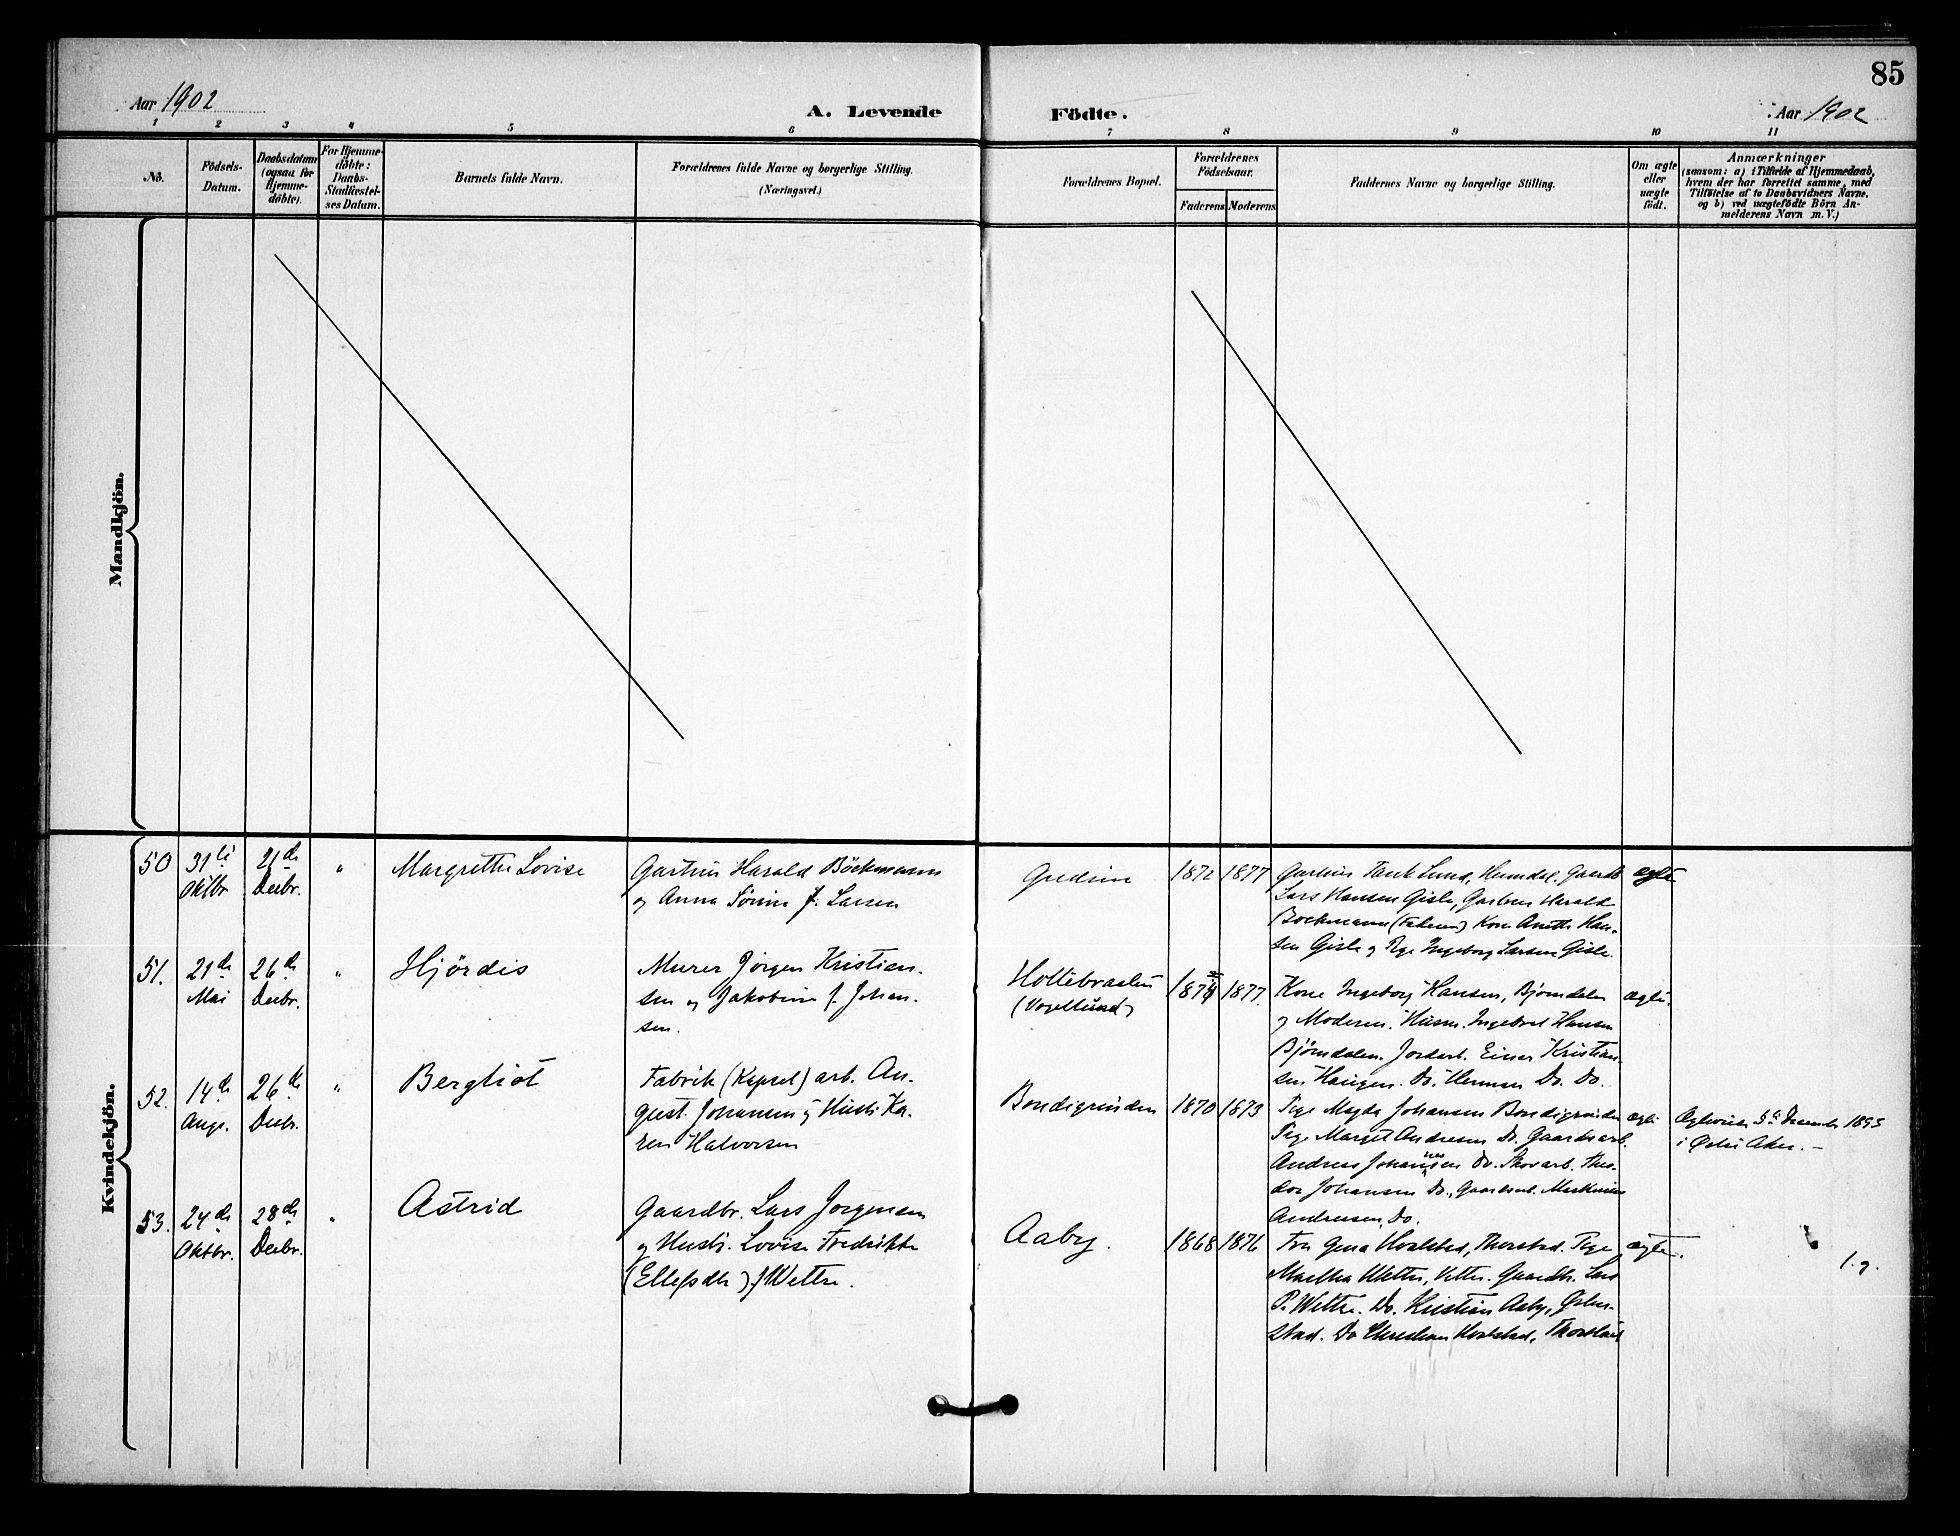 85
Aar 1902
A. Levende
Födte.
Aar 1902
1 2 3 4 5 6 7 8 9 10 11
No.
Födsels-
Datum.
Daabsdatum
(ogsaa for
Hjemme-
döbte).
For Hjemme-
döbte:
Daabs-
Stadfæstel-
ses Datum.
Barnets fulde Navn.
Forældrenes fulde Navne og borgerlige Stilling.
(Næringsvei.)
Forældrenes Bopæl.
Forældrenes
Födselsaar.
Faderens Moderens
Faddernes Navne og borgerlige Stilling.
Om ægte
eller
uægte
födt.
Anmærkninger
(saasom: a) i Tilfælde af Hjemmedaab,
hvem der har forrettet samme, med
Tilföielse af to Daabsvidners Navne,
og b) ved uægtefödte Börn An-
melderens Navn m. V.)
Mandkjön.
Kvindekjön.
50
31
Oktbr
21de
Decbr.
"
Margrethe Lovise
Gartner Harald Böckmann
og Anna Sörine f. Larsen
1872
1877
Gartner Tank Lund, Humdal. Gaardb
Lars Hansen Gisle, Gartner Harald
Bockmann (Faderen) Kone Anethe Han-
sen Gisle og Pige Ingeborg Larsen Gisle.
ægte
51.
21de
Mai
26de
Decbr.
"
Hjördis
Murer Jörgen Kristian-
sen og Jakobine f. Johan-
sen.
Holtebraaten
(Vogellund)
1877.
Kone Ingeborg Hansen, Bjorndalen
og Moderen. Husm. Ingebret Hansen
Björndalen. Jordarb. Einar Kristian-
sen Haugen. Do. Herman Do. Do.
ægte.
52.
14de
Aug.
26de
Decbr.
"
Bergliot
Fabrik (Kapsel) arb. Au-
gust Johansen og Hustr. Ka-
ren Halvorsen
Bondigrinden
1870
1873
Pige Magda Johansen Bondigrinden
Pige Margit Andresen Do. Gaardsarb.
Andreas Johannesen Do. Skovarb. Theo-
dor Johansen Do., Gaardsarb.
Andresen, Do.
ægte
Ægteviede December 1895
i Østre Aker. –
53.
24de
Oktbr.
28de
Decbr.
"
Astrid
Gaardbr. Lars Jorgensen
og Hustr. Lovise Fredrikke
(Ellefsdtr) f. Wettre.
Aaby.
1868
1876
Fru Gina Hvalstad, Thorstad. Pige
Martha Wettre, Vettre. Gaardbr. Lars
P. Wettre. Do. Kristian Aaby, Østen-
stad. Do Christian Hvalstad, Thorstad
ægte.